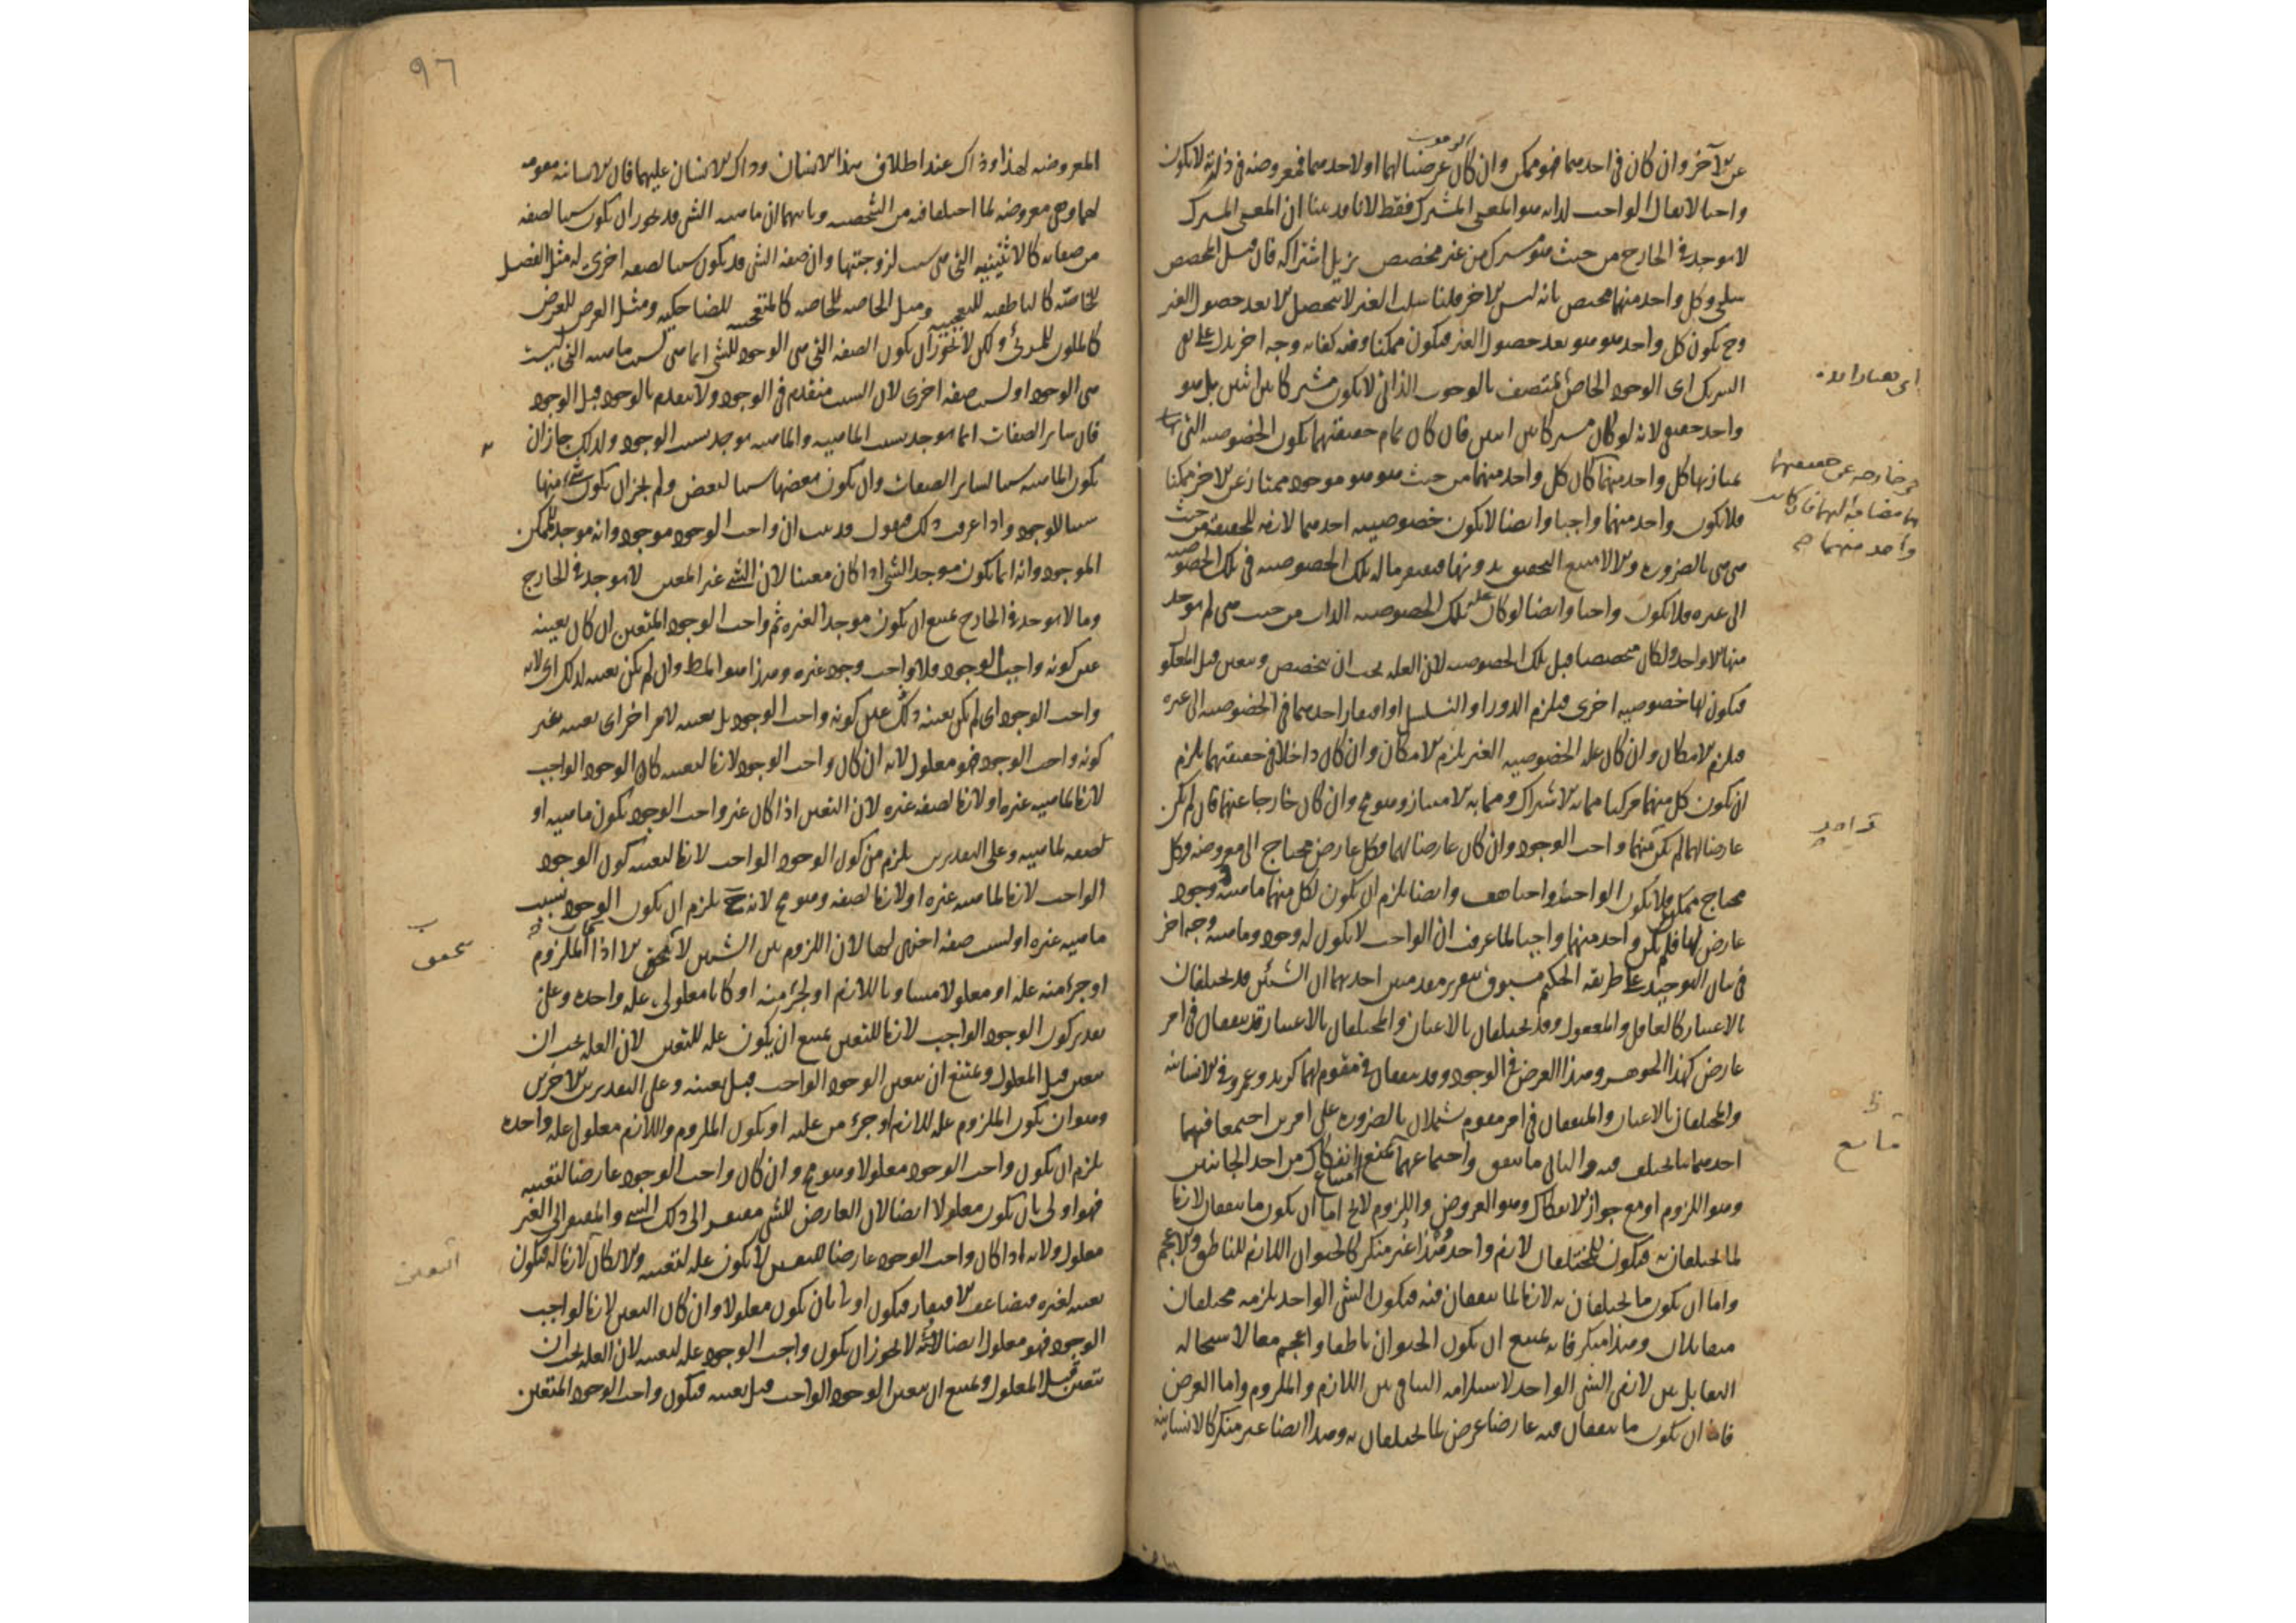 عن الآخر وان كان في احدهما فهو ممكن وان كان عرضيا لهما او لاحدهما فمعروضه في ذاته لا يكون
واجبا لا يقال الواجب لذاته هو المعنى المشترك فقط لانا قد بينا ان المعنى المشترك
لا يوجد في الخارج من حيث هو مشترك من غير مخصص يزيل اشتراكه فان قيل المخصص
سلبي وكل واحد منهما مختص بانه ليس الاخر قلنا سلب الغير لا يتحصل الا بعد حصول الغير
وح يكون كل واحد هو هو بعد حصول الغير فيكون ممكنا وفيه كفاية وجه اخر يدل على نفي
الشريك اى الوجود الخاص المتصف بالوجوب الذاتي لا يكون مشتركا بين اثنين بل هو
واحد حقيقي لانه لو كان مشتركا بين اثنين فان كان تمام حقيقتهما يكون الخصوصية التي بها
يمتاز بها كل واحد منهما كان كل واحد منهما من حيث هو هو موجود ممتاز عن الاخر ممكنا
فلا يكون واحد منهما واجبا وايضا لا يكون خصوصية احدهما لازمة للحقيقة من حيث
هي هي بالضرورة والا لامتنع التحقق بدونها فيفتقر ما له تلك الخصوصية في تلك الخصوصية
الى غيره فلا يكون واجبا وايضا لو كان علة تلك الخصوصية الذات من حيث هي لم يوجد
منها الا واحد ولكان متخصصا قبل تلك الخصوصية لان العلة يجب ان تتخصص وتتعين قبل المعلول
فيكون لها خصوصية اخرى فيلزم الدور او التسلسل او افتقار احدهما في الخصوصية الى غيره
فيلزم الامكان وان كان علة الخصوصية الغير يلزم الامكان وان كان داخلا في حقيقتهما يلزم
ان يكون كل منهما مركبا مما به الاشتراك ومما به الامتياز وهو مح وان كان خارجا عنهما فان لم يكن
عارضا لهما لم يكن منهما واجب الوجود وان كان عارضا لهما فكل عارض محتاج الى معروضه وكل
محتاج ممكن فلا يكون الواجب واجبا هف وايضا يلزم ان يكون لكل منهما ماهية ووجود
عارض لها فلم يكن واحد منهما واجبا لما عرفت ان الواجب لا يكون له وجود وماهية وجه اخر
في بيان التوحيد على طريقة الحكيم مسبوق بتقرير مقدمتين احديهما ان الشيئين قد يختلفان
بالاعتبار كالعاقل والمعقول وقد يختلفان بالاعيان والمختلفان بالاعتبار قد يتفقان في امر
عارض كهذا الجوهر وهذا العرض في الوجود وقد يتفقان في مقوم لهما كزيد وعمرو في الانسانية
والمختلفان بالاعيان والمتفقان في امر مقوم يشتملان بالضرورة على امرين اجتمعا فيهما
احدهما ما يختلف فيه والثاني ما يتفق واجتماعهما يمتنع انفكاك من احد الجانبين
وهو اللزوم او مع جواز الانفكاك وهو العروض واللزوم لا يخ اما ان يكون ما يتفقان لازما
لما يختلفان به فيكون للمختلفان لازم واحد وهذا غير منكر كالحيوان اللازم للناطق والاعجم
واما ان يكون ما يختلفان به لازما لما يتفقان فيه فيكون الشي الواحد يلزمه مختلفان
متقابلان وهذا منكر فانه يمتنع ان يكون الحيوان ناطقا واعجم معا لاستحالة
التقابل بين لازمي الشي الواحد لاستلزامه التنافي بين اللازم والملزوم واما العروض
فاما ان يكون ما يتفقان فيه عارضا عرض لما يختلفان به وهذا ايضا غير منكر كالانسانية
هي خارجة عن حقيقتهما
مضافة اليهما فان كانت
واحد منهما
واحد
٩٦
المعروضة لهذا وذاك عند اطلاق هذا الانسان وذاك الانسان عليهما فان الانسانية مقومة
لهما وهي معروضة لما اختلفا فيه من الشخصية وثانيهما ان ماهية الشي قد يجوز ان يكون سببا لصفة
من صفاته كالاثنينية التي هي سبب لزوجيتها وان صفة الشي قد يكون سببا لصفة اخرى له مثل الفصل
للخاصة كالناطقية للمتعجبية ومثل الخاصة للخاصة كالمتعجبية للضاحكية ومثل العرض للعرض
كالملون للمرئي ولكن لا يجوز ان يكون الصفة التي هي الوجود للشي انما هي بسبب ماهيته التي ليست
هي الوجود او بسبب صفة اخرى لان السبب متقدم في الوجود ولا يتقدم بالوجود قبل الوجود
فان سائر الصفات انما يوجد بسبب الماهية والماهية يوجد بسبب الوجود ولذلك جاز ان
يكون الماهية سببا لسائر الصفات وان يكون بعضها سببا لبعض ولم يجز ان يكون شي منها
سببا للوجود واذا عرفت ذلك فنقول قد ثبت ان واجب الوجود موجود وانه موجد للممكن
الموجود وانه انما يكون موجد الشي اذا كان معينا لان الشي غير المعين لا يوجد في الخارج
وما لا يوجد في الخارج يمتنع ان يكون موجدا لغيره ثم واجب الوجود المتعين ان كان تعينه
عين كونه واجب الوجود فلا واجب وجود غيره وهذا هو المط وان لم يكن تعينه لذلك اى لانه
واجب الوجود اى لم يكن تعينه ذلك علل كونه واجب الوجود بل تعينه لامر اخر اى تعينه بغير
كونه واجب الوجود فهو معلول لانه ان كان واجب الوجود لازما لتعينه كان الوجود الواجب
لازما لماهية غيره او لازما لصفة غيره لان التعين اذا كان غير واجب الوجود يكون ماهية او
لصفة لماهية وعلى التقديرين يلزم من كون الوجود الواجب لازما لتعينه كون الوجود
الواجب لازما لماهية غيره او لازما لصفة وهو مح لانه ح يلزم ان يكون الوجود بسبب
ماهية غيره او بسبب صفة اخرى لها لان اللزوم بين الشيئين لا يتحقق الا اذا كان الملزوم
او جزء منه علة او معلولا مساويا للازم او لجزء منه او كانا معلولي علة واحدة وعلى
تقدير كون الوجود الواجب لازما للتعين يمتنع ان يكون علة للتعين لان العلة يجب ان
تتعين قبل المعلول ويمتنع ان يتعين الوجود الواجب قبل تعينه وعلى التقديرين الاخرين
وهو ان يكون الملزوم علة للازم او جزء من علته او يكون الملزوم واللازم معلول علة واحدة
يلزم ان يكون واجب الوجود معلولا وهو مح وان كان واجب الوجود عارضا لتعينه
فهو اولى بان يكون معلولا ايضا لان العارض للشي مفتقر الى ذلك الشي والمفتقر الى الغير
معلول ولانه اذا كان واجب الوجود عارضا للتعين لا يكون علة لتعينه والا لكان لازما له فيكون
تعينه لغيره فيتضاعف الافتقار فيكون اولى بان يكون معلولا وان كان التعين لازما لواجب
الوجود فهو معلول ايضا لانه لا يجوز ان يكون واجب الوجود علة لتعينه لان العلة يجب ان
تتعين قبل المعلول ويمتنع ان يتعين الوجود الواجب قبل تعينه فيكون واجب الوجود المتعين
التعين